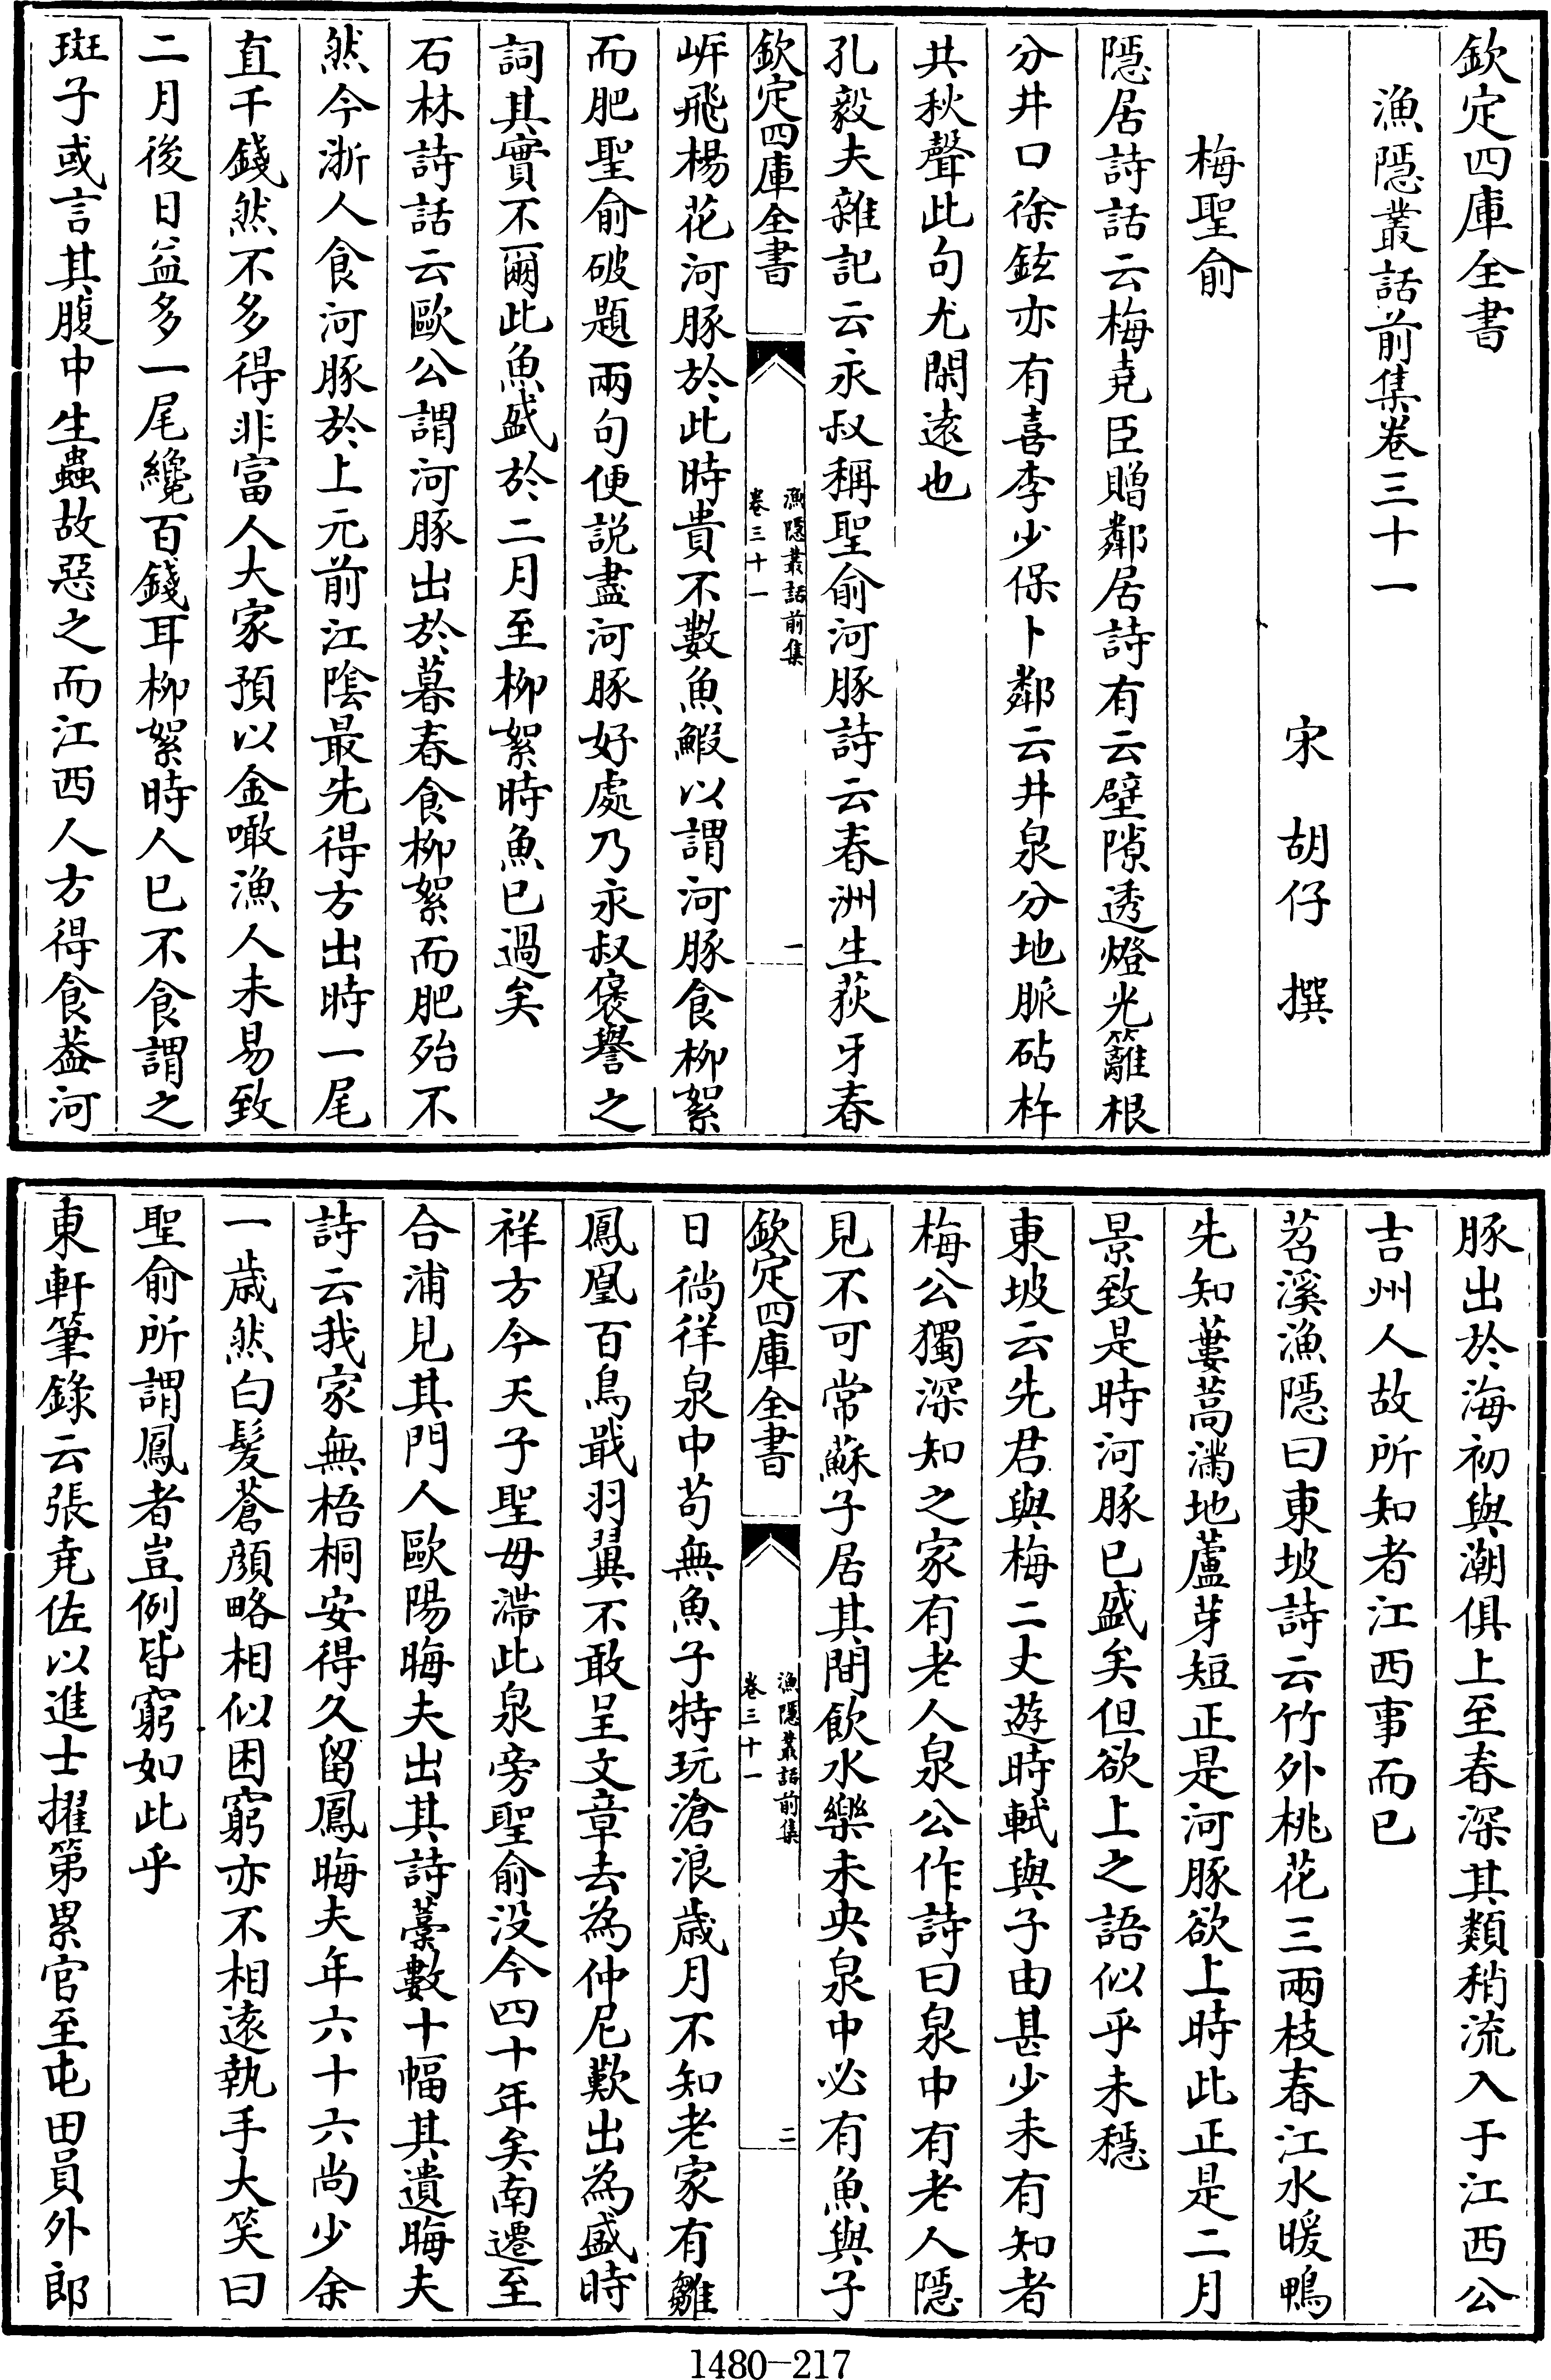 欽定四庫全書
漁隱叢話前集卷三十一
宋　胡仔　撰
梅聖俞
隱居詩話云梅堯臣贈鄰居詩有云壁隙透燈光籬根
分井口徐鉉亦有喜李少保卜鄰云井泉分地脈砧杵
共秋聲此句尤閑遠也
孔毅夫雜記云永叔稱聖俞河豚詩云春洲生荻牙春
欽定四庫全書
漁隱叢話前集
卷三十一
一
岍飛楊花河豚於此時貴不數魚鰕以謂河豚食栁絮
而肥聖俞破題兩句便説盡河豚好處乃永叔褒譽之
詞其實不爾此魚盛於二月至栁絮時魚已過矣
石林詩話云歐公謂河豚出於暮春食栁絮而肥殆不
然今浙人食河豚於上元前江隂最先得方出時一尾
直千錢然不多得非富人大家預以金噉漁人未易致
二月後日益多一尾纔百錢耳栁絮時人已不食謂之
斑子或言其腹中生蟲故惡之而江西人方得食葢河
豚出於海初與潮俱上至春深其類稍流入于江西公
吉州人故所知者江西事而已
苕溪漁隱曰東坡詩云竹外桃花三兩枝春江水暖鴨
先知蔞蒿滿地蘆芽短正是河豚欲上時此正是二月
景致是時河豚已盛矣但欲上之語似乎未穩
東坡云先君與梅二丈遊時軾與子由甚少未有知者
梅公獨深知之家有老人泉公作詩曰泉中有老人隱
見不可常蘇子居其間飲水樂未央泉中必有魚與子
欽定四庫全書
漁隱叢話前集
卷三十一
二
日徜徉泉中苟無魚子特玩滄浪嵗月不知老家有雛
鳳凰百鳥戢羽翼不敢呈文章去為仲尼歎出為盛時
祥方今天子聖毋滯此泉旁聖俞没今四十年矣南遷至
合浦見其門人歐陽晦夫出其詩藁數十幅其遺晦夫
詩云我家無梧桐安得久留鳳晦夫年六十六尚少余
一嵗然白髮蒼顔略相似困窮亦不相遠執手大笑曰
聖俞所謂鳳者豈例皆窮如此乎
東軒筆錄云張堯佐以進士擢第累官至屯田員外郎
1480—217